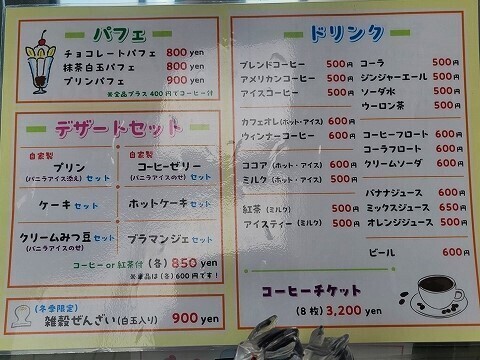 パフェ
チョコレートパフェ 800 yen
抹茶白玉パフェ 800 yen
プリンパフェ 900 yen
※全品プラス400円でコーヒー付
デザートセット
自家製
プリン
(バニラアイス添え)セット
自家製
コーヒーゼリー
(バニラアイスのせ)セット
ケーキセット
ホットケーキセット
クリームみつ豆セット
(バニラアイスのせ)
ブラマンジェセット
コーヒー or 紅茶付(各)850 yen
※単品は(各)600円です!
(冬季限定)
雑穀ぜんざい(白玉入り) 900 yen
ドリンク
ブレンドコーヒー 500円
アメリカンコーヒー 500円
アイスコーヒー 500円
カフェオレ(ホット・アイス) 600円
ウィンナーコーヒー 600円
ココア(ホット・アイス) 600円
ミルク(ホット・アイス) 500円
紅茶(ミルク) 500円
アイスティー(ミルク) 500円
コーラ 500円
ジンジャーエール 500円
ソーダ水 500円
ウーロン茶 500円
コーヒーフロート 600円
コーラフロート 600円
クリームソーダ 600円
バナナジュース 600円
ミックスジュース 650円
オレンジジュース 500円
ビール 600円
コーヒーチケット
(8枚)3,200 yen